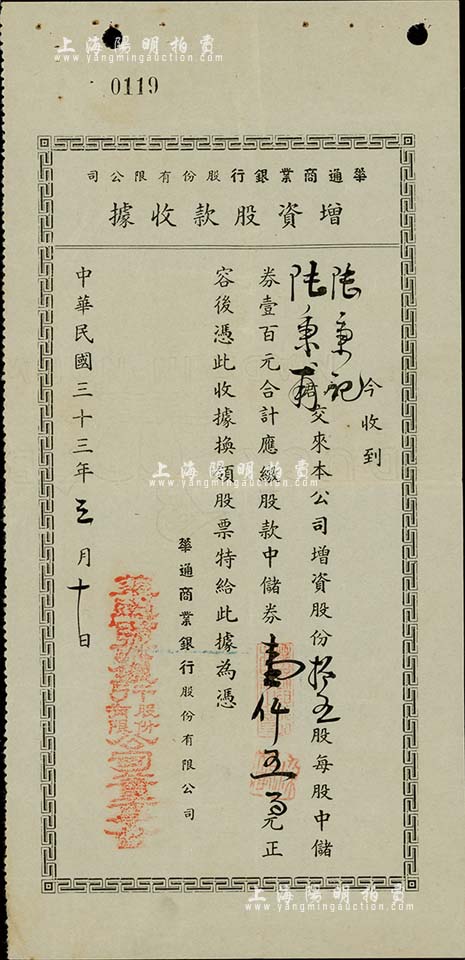 上海陽明拍賣
www.yangmingauction.com
0119
華通商業銀行股份有限公司
增資股款收據
今收到
陸秉記
陸秉甫君交來本公司增資股份拾五股每股中儲
券壹百元合計應繳股款中儲券壹仟五百元正
容後憑此收據換領股票特給此據為憑
華通商業銀行股份有限公司
中華民國三十三年三月十日
上海陽明拍賣
www.yangmingauction.com
上海陽明拍賣
www.yangmingauction.com